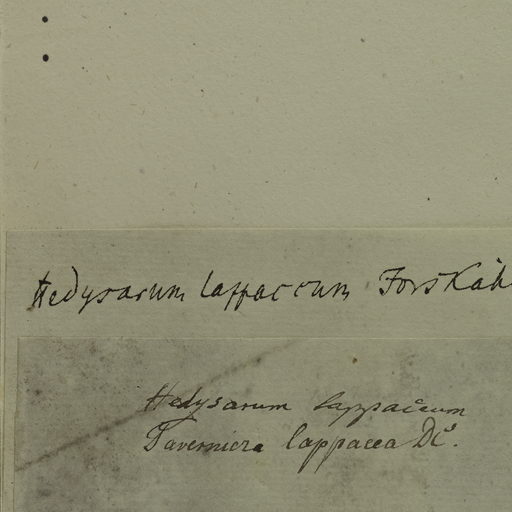 Hedysarum lappaceum Forskåh
Hedysarum lappaceum
Taverniera lappacea DC.